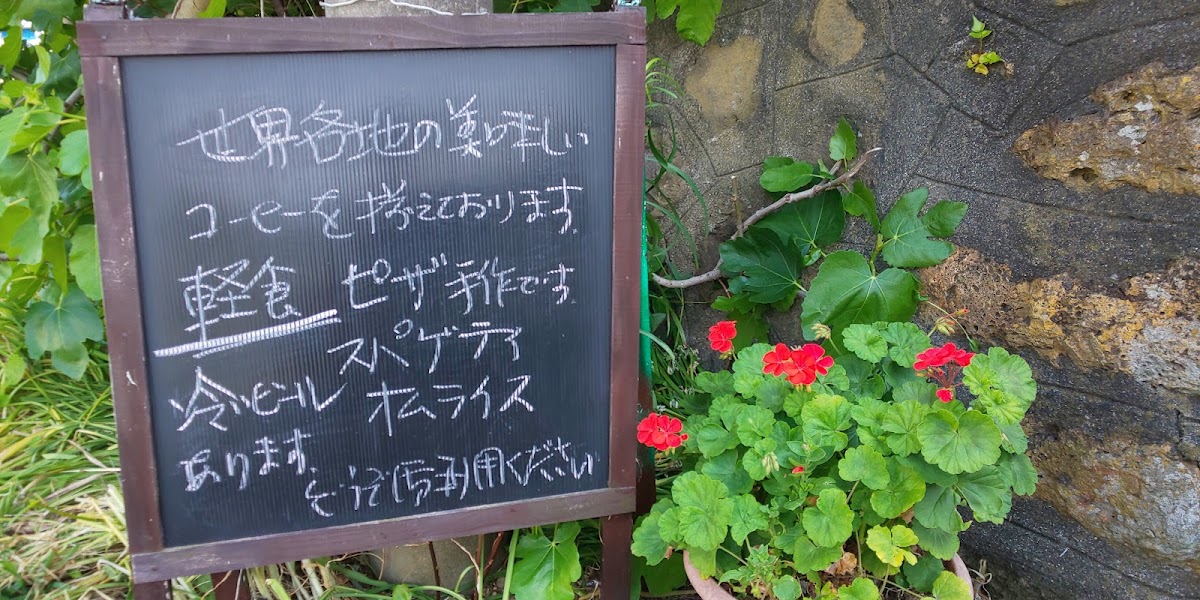 世界各地の美味しい
コーヒーを揃えております。
軽食 ピザ手作です
スパゲティ
冷いビール オムライス
あります。
どうぞ御利用ください